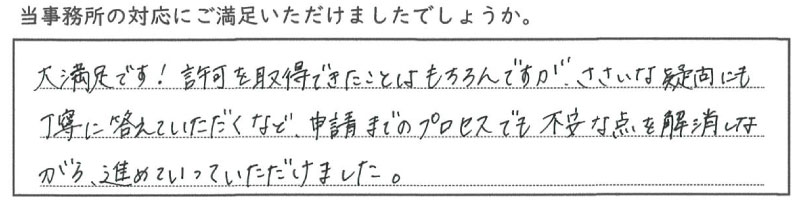 当事務所の対応にご満足いただけましたでしょうか。
大満足です！許可を取得できたことはもちろんですが、ささいな疑問にも
丁寧に答えていただくなど、申請までのプロセスでも不安な点を解消しな
がら、進めていっていただけました。